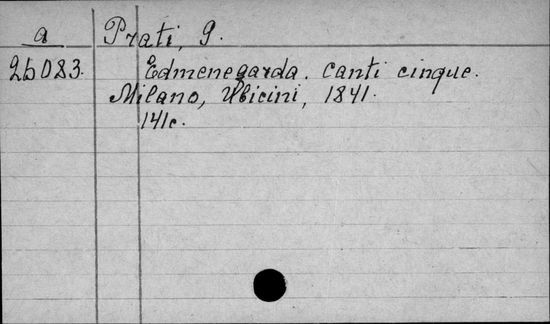 a Prati, G.
26083. Edmenegarda. Canti cinque.
Milano, Ubicini, 1841.
141c.